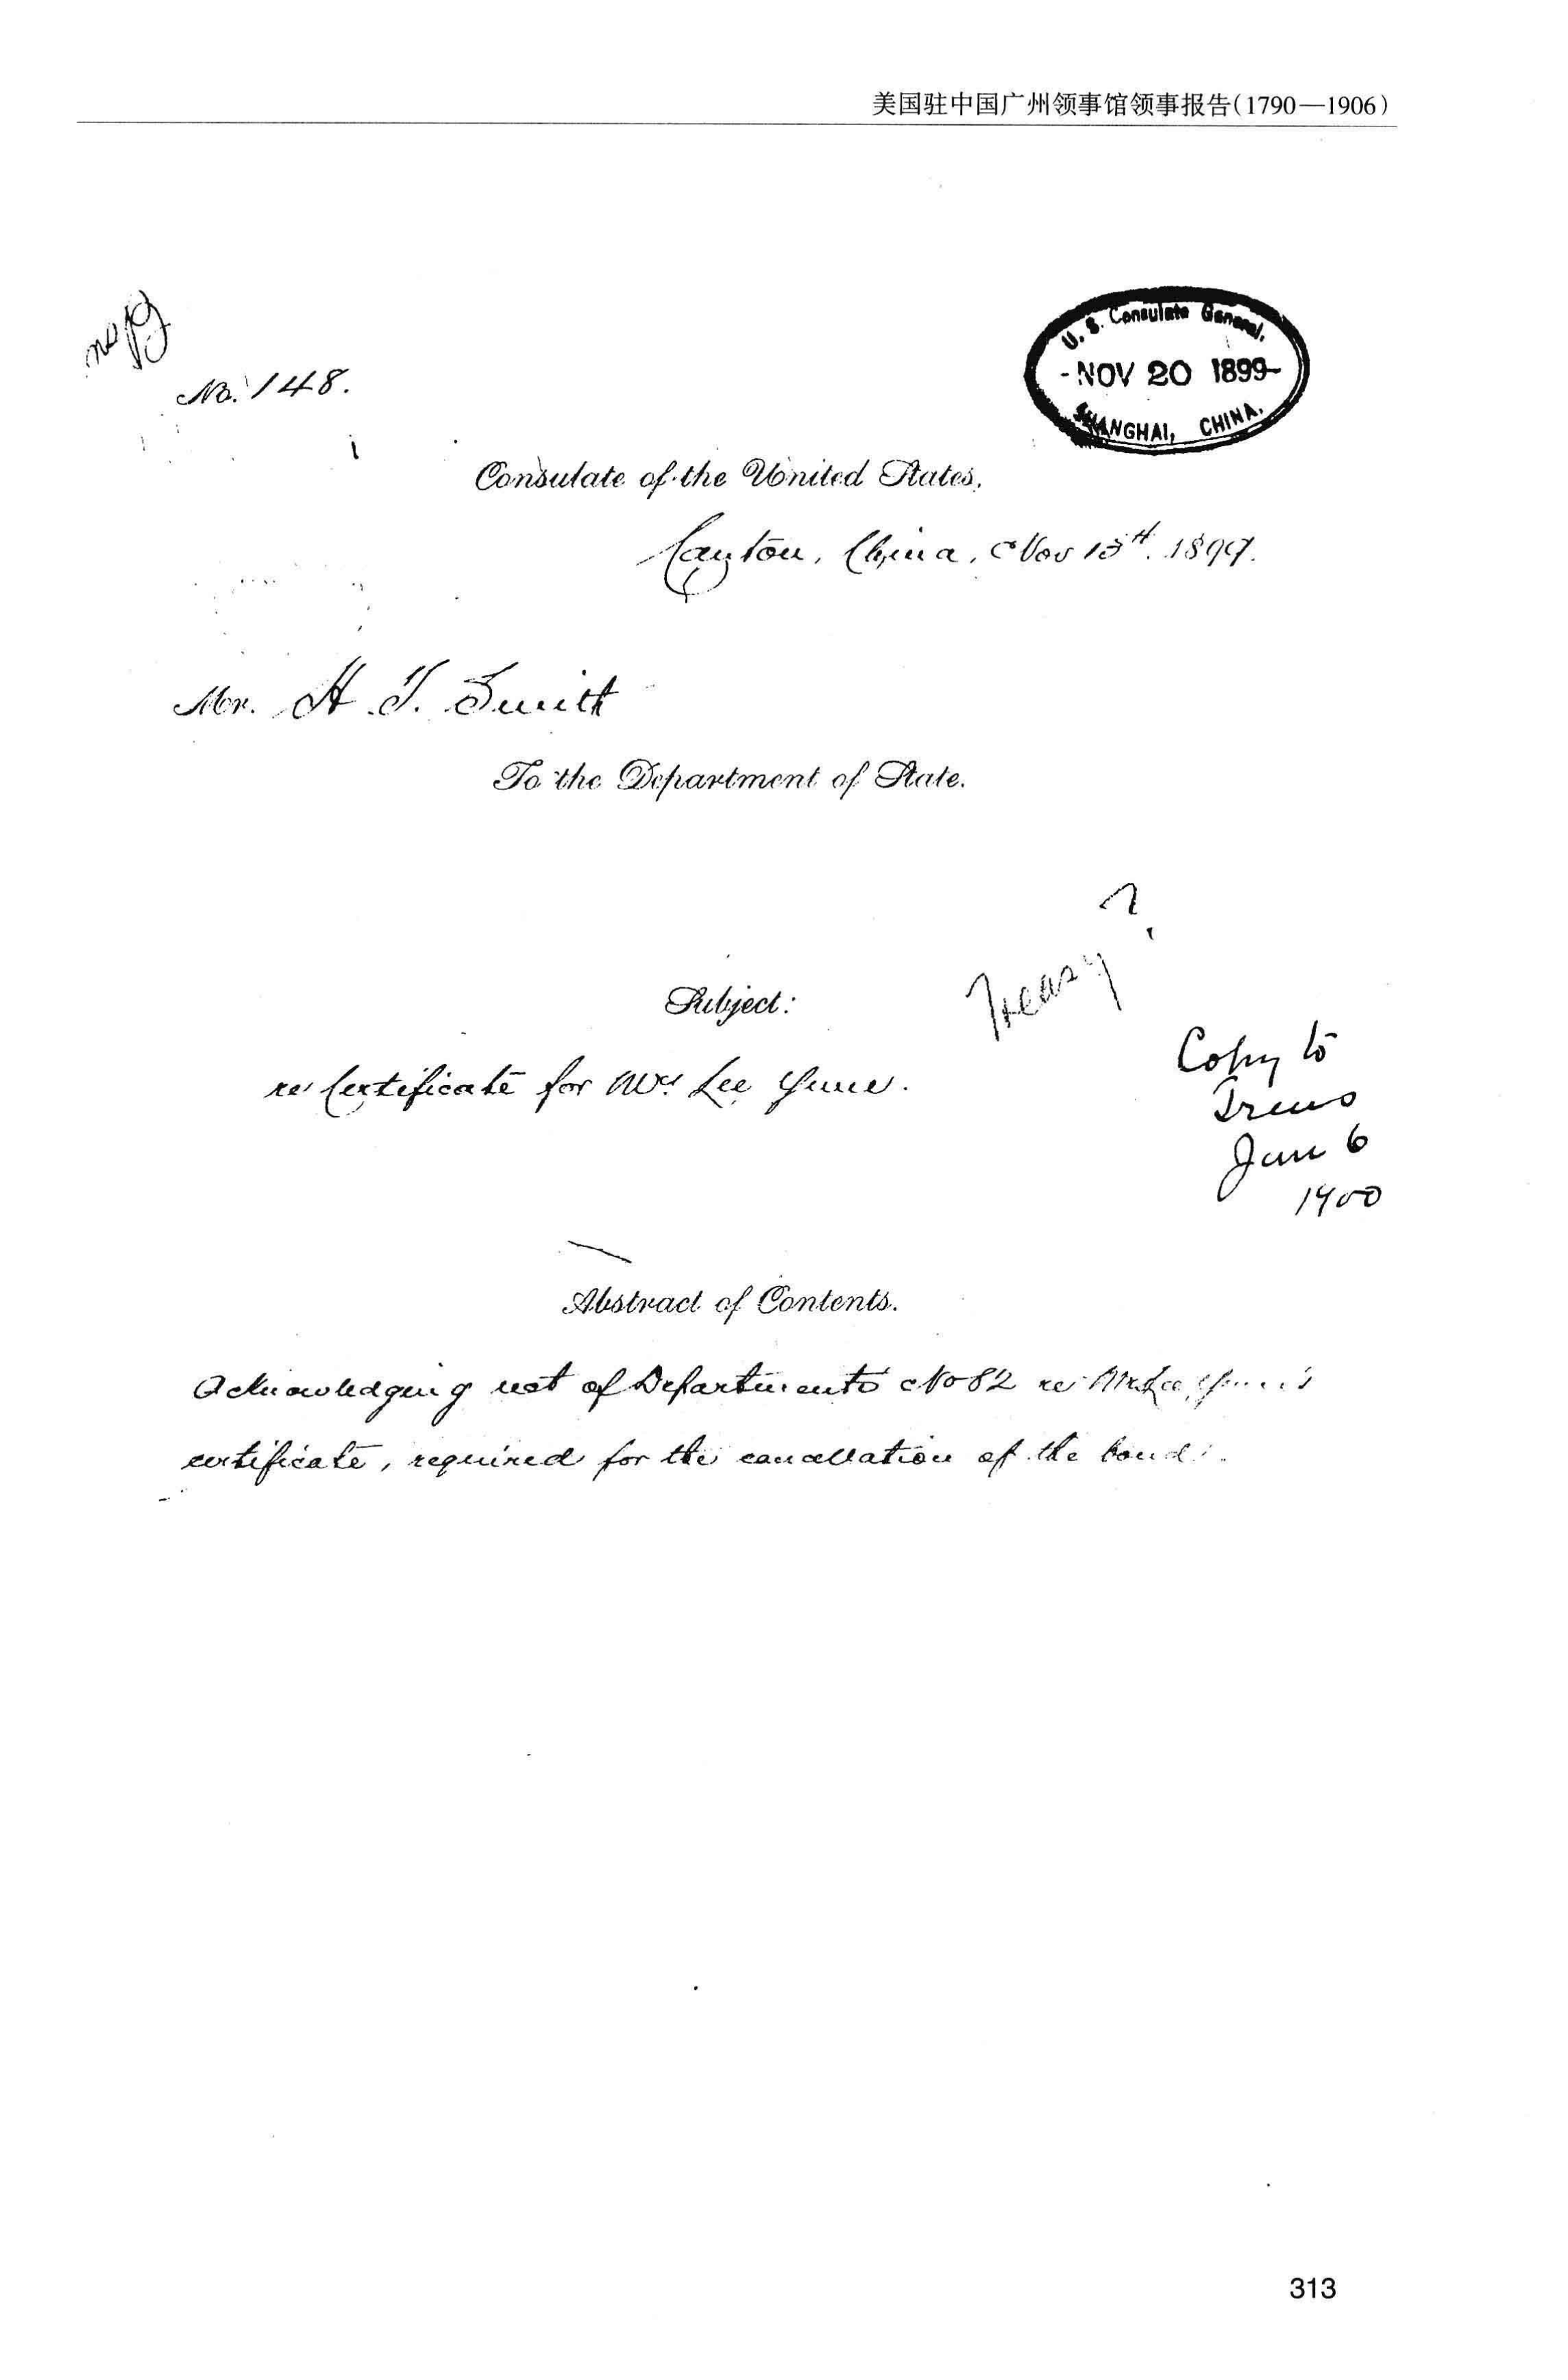 美国驻中国广州领事馆领事报告(1790—1906)
No. 148.
U. S. Consulate General,
-NOV 20 1899-
SHANGHAI, CHINA.
Consulate of the United States,
Canton, China, Nov 13th. 1899.
Mr. H. T. Smith
To the Department of State.
Treasy?
Subject:
re Certificate for Mrs Lee
Copy to
Treas
Jan 6
1900
Abstract of Contents.
Acknowledging rect of Departments No 82 re Mrs Lee
certificate, required for the cancellation of the bond.
313